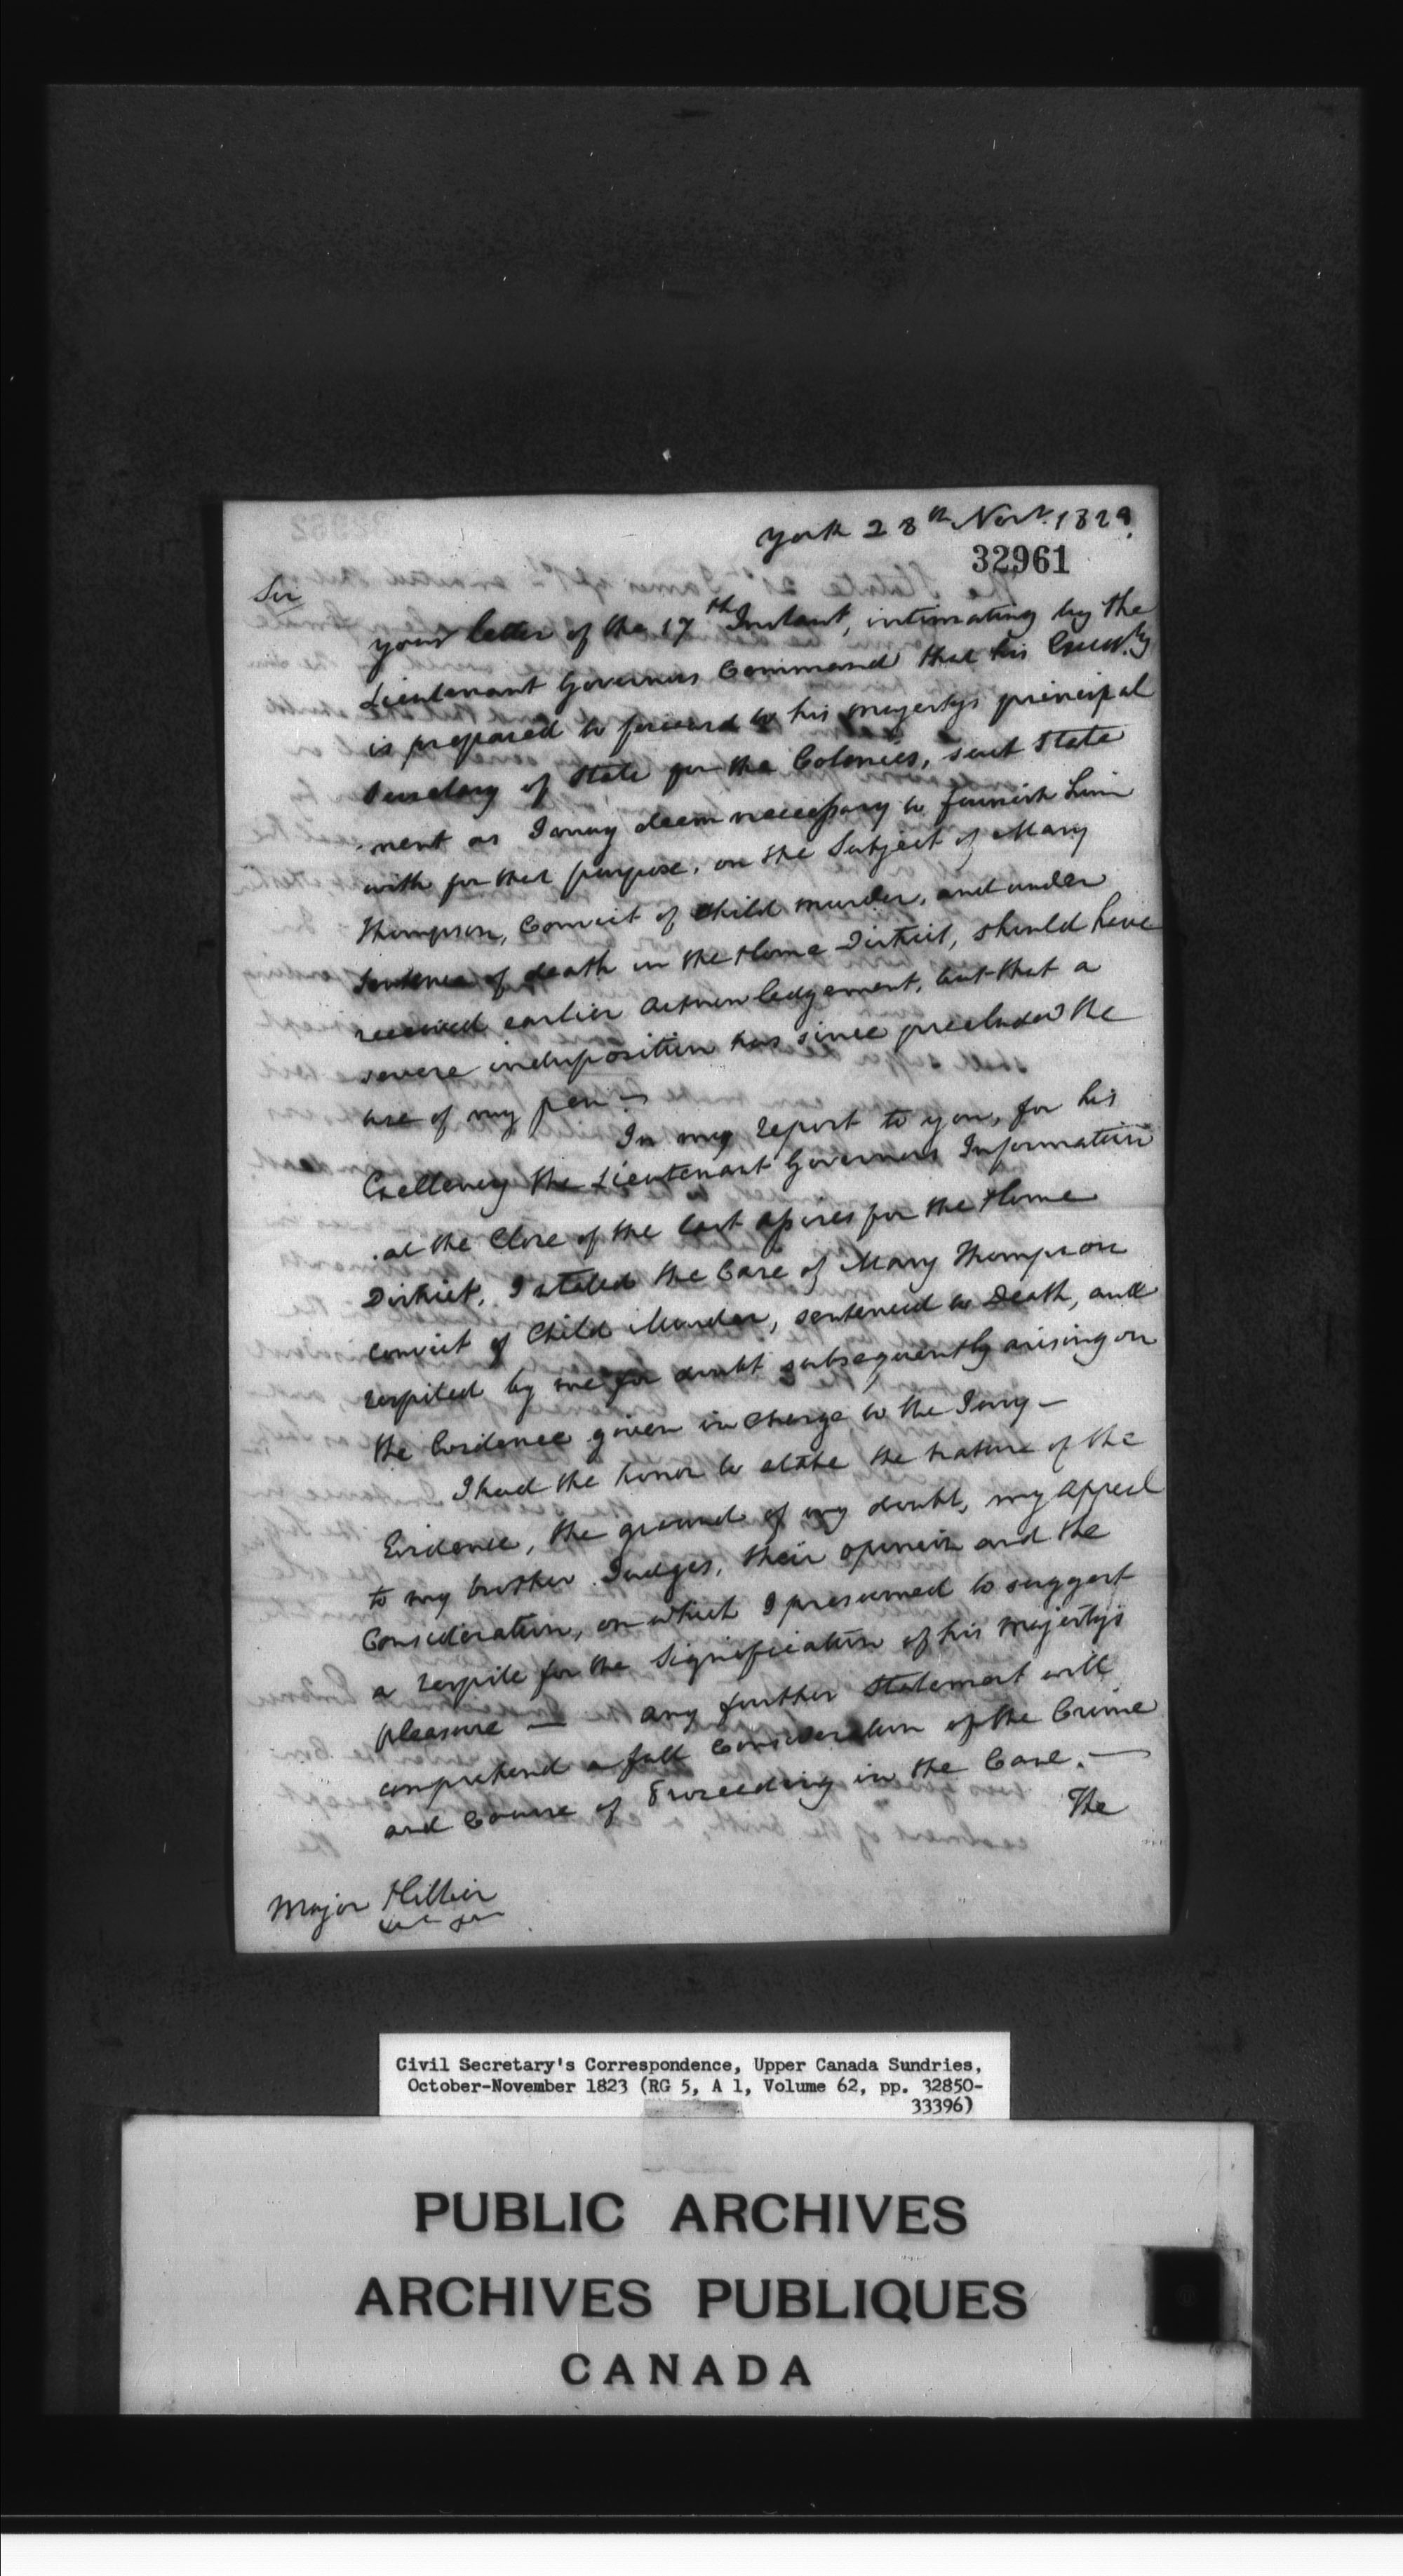 York 28th Novr. 1823
32961
Sir
your letter of the 17th Instant, intimating by the
Lieutenant Governors Command that his Excelly
is prepared to forward to his majestys principal
Secretary of State for the Colonies, such State
-ment as I may deem necessary to furnish him
with for that purpose, on the Subject of Mary
Thompson, Convict of Child murder, and under
Sentence of death in the Home District, should have
received earlier acknowledgement, but that a
severe indisposition has since precluded the
use of my pen —
In my report to you, for his
Excellency the Lieutenant Governors Information
at the Close of the last assizes for the Home
District, I stated the Case of Mary Thompson
convict of Child Murder, sentenced to Death, and
respited by me for doubt subsequently arising on
the Evidence given in charge to the Jury —
I had the honor to state the nature of the
Evidence, the ground of my doubt, my appeal
to my brother Judges, their opinion and the
Consideration, on which I presumed to suggest
a respite for the Signification of his majestys
pleasure — any further Statement will
comprehend a full Consideration of the Crime
and Course of Proceeding in the Case. —
The
Major Hillier
Civil Secretary's Correspondence, Upper Canada Sundries,
October-November 1823 (RG 5, A 1, Volume 62, pp. 32850-
33396)
PUBLIC ARCHIVES
ARCHIVES PUBLIQUES
CANADA